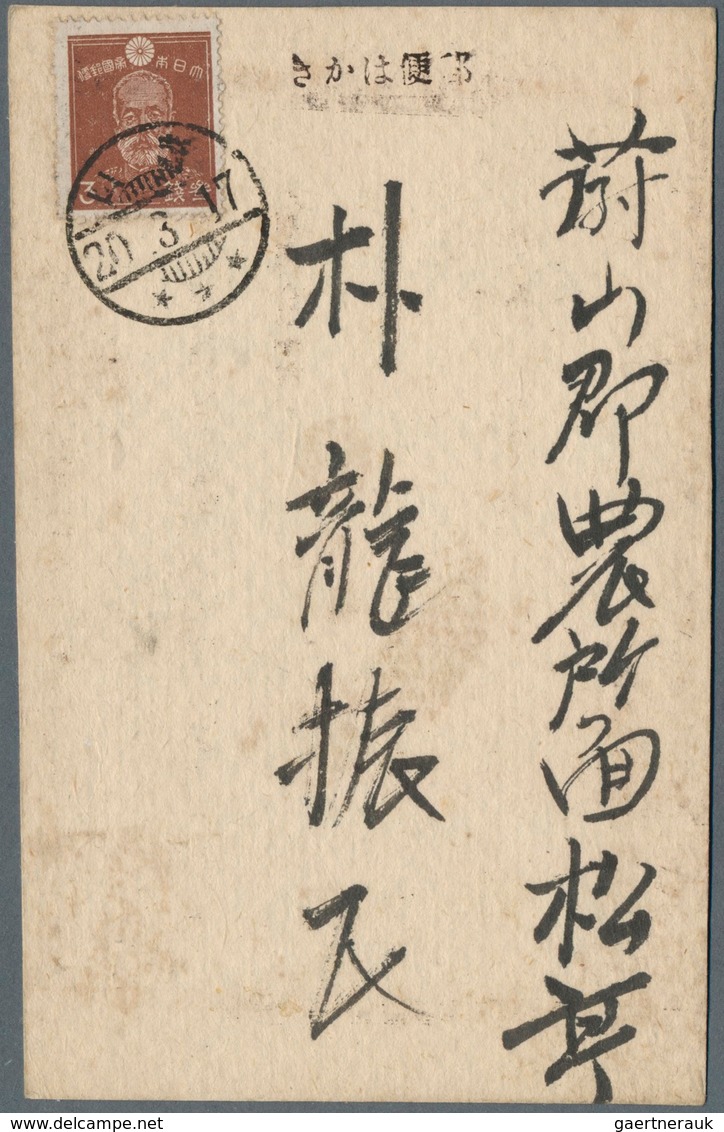 大日本帝國郵便
3
銭
20 3 17
郵便はかき
蔚山郡農所面松亭
朴龍振氏
gaertnerauk